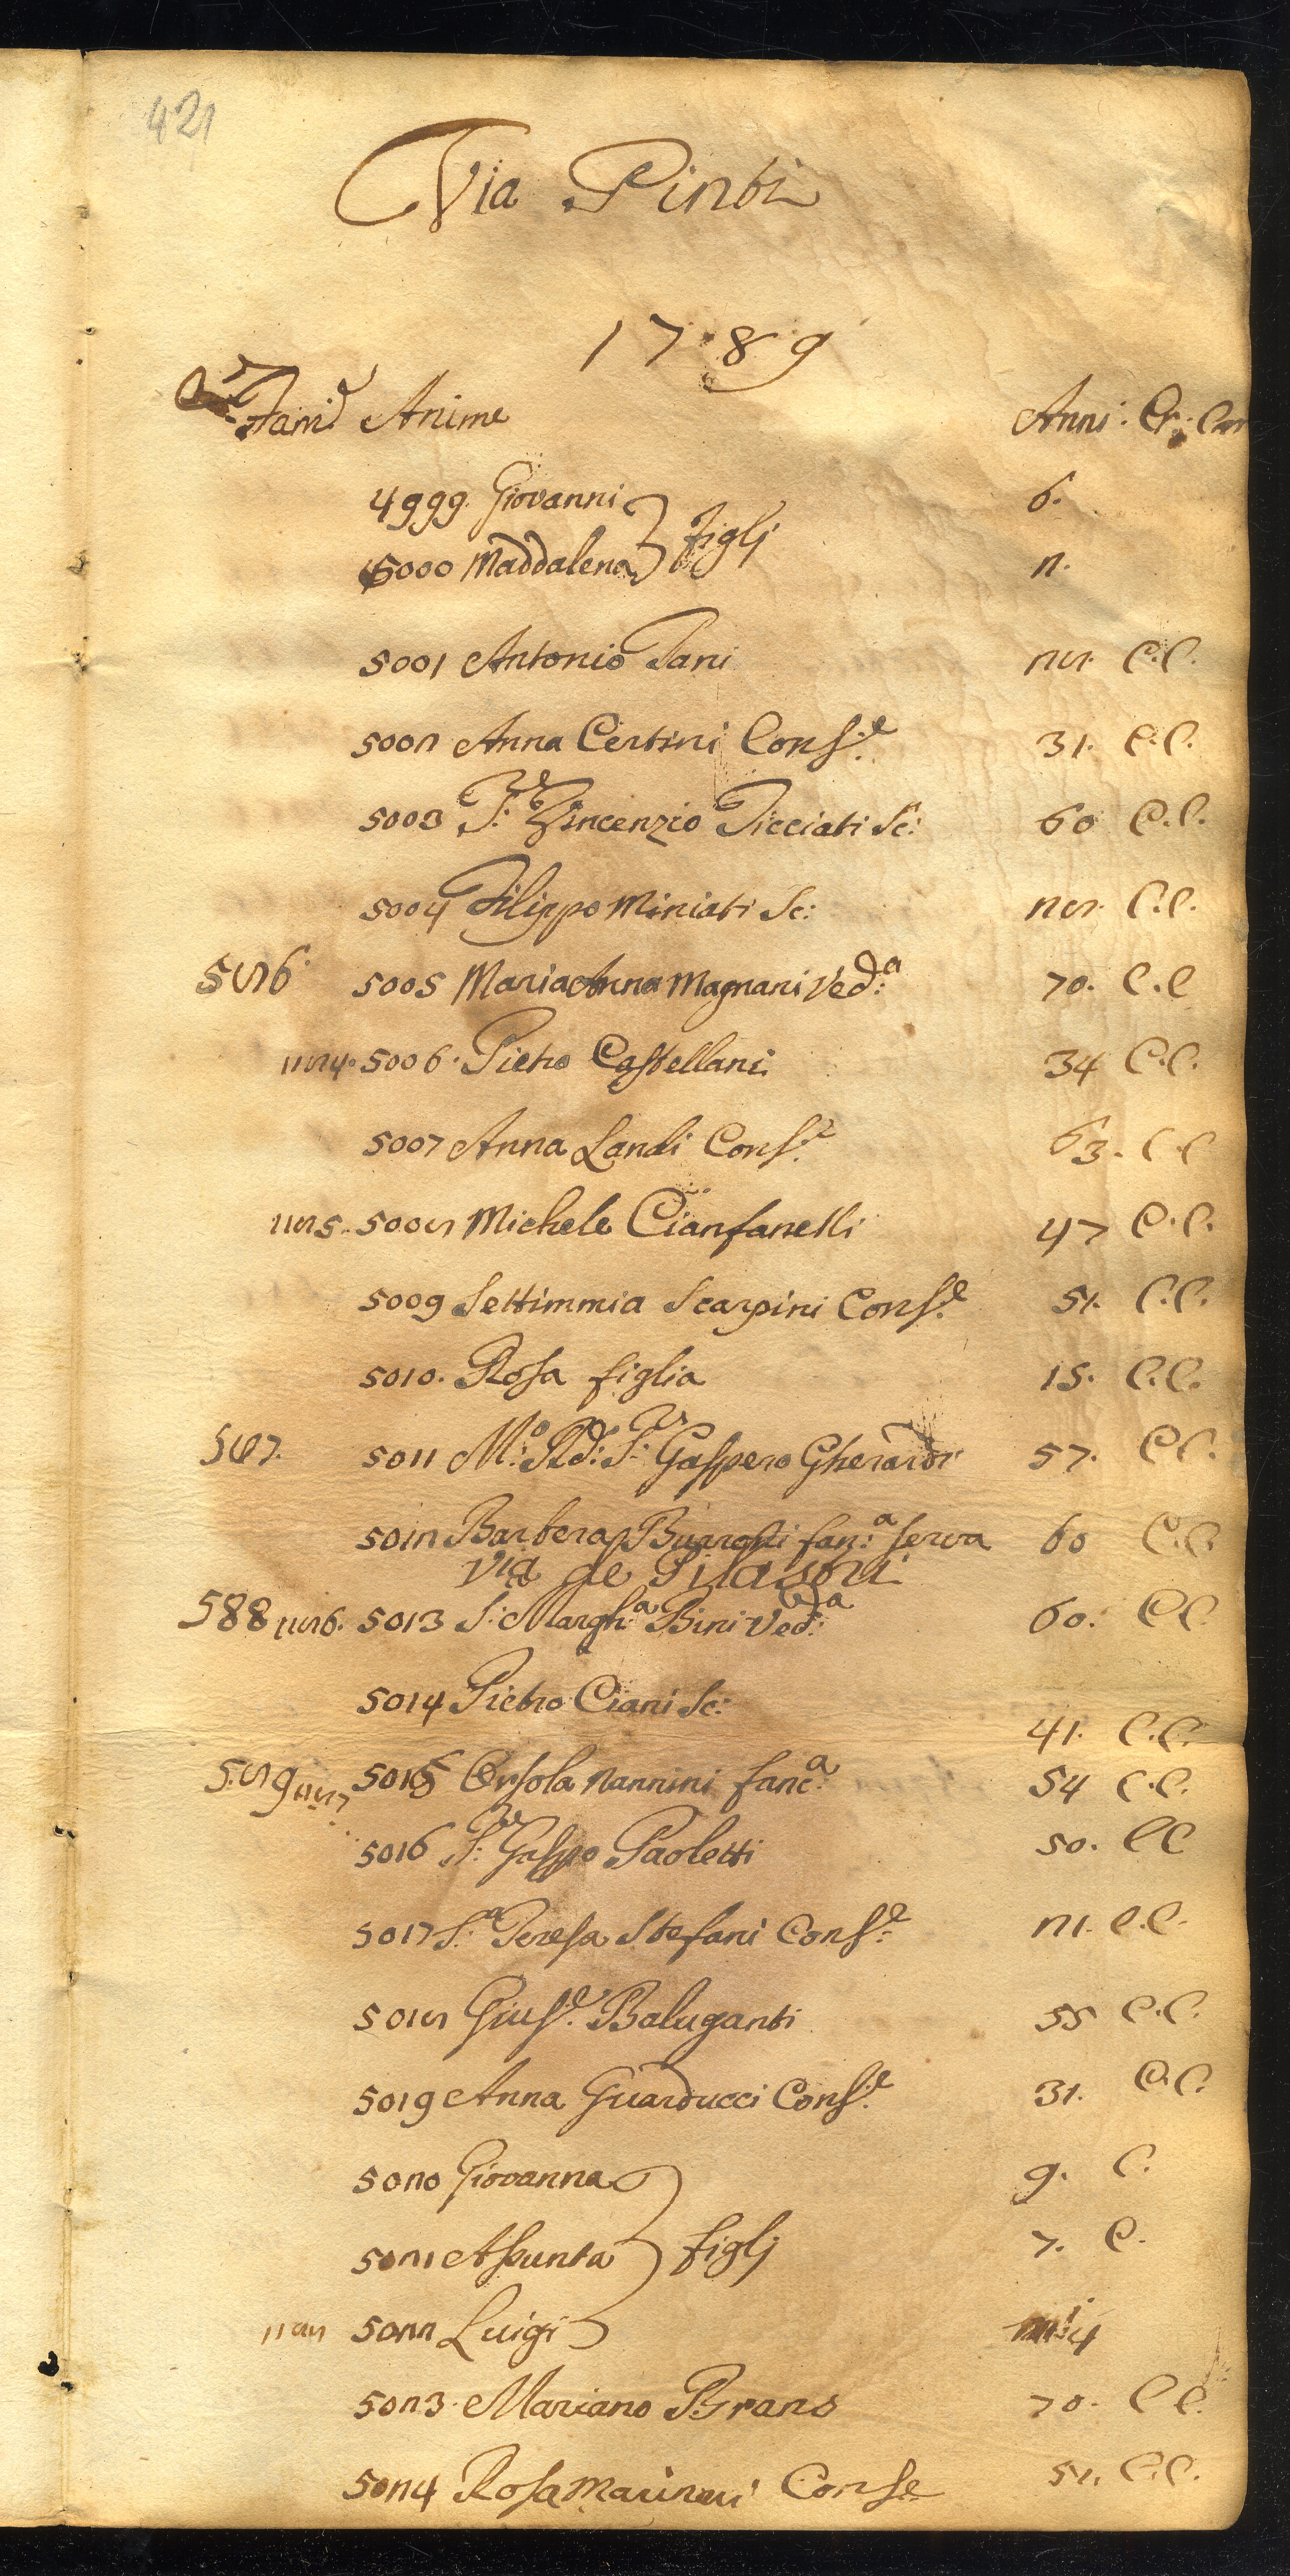 421
Via Pinti
1789
Fam: Anime Anni. Cr. Com
4999. Giovanni 6.
5000 Maddalena } figlj 2.
5001 Antonio Pani 28. C.C.
5002 Anna Certini Cons:e 31. C.C.
5003 S:re Vincenzio Picciati Sc: 60 C.C.
5004 Filippo Miniati Sc: 28. C.C.
586. 5005 Maria Anna Magnani Ved:a 70. C.C
1184. 5006. Pietro Castellani 34 C.C.
5007 Anna Landi Cons:e 63. C C
1185. 5008 Michele Cianfanelli 47 C.C.
5009 Settimmia Scarpini Cons:e 51. C.C.
5010. Rosa figlia 15. C.C.
587. 5011 M:o Rd:o S:r Gaspero Gherardi 57. C C.
5012 Barbera Burresi fan:a serva 60 C.C
Via de Pilastri
588 1186. 5013 S: Margh:a Bini Ved:a 60. C C.
5014 Pietro Ciani Sc: 41. C.C.
589 1187 5015 Orsola Nannini fanc:a 54 C.C.
5016 S:re Gasp:o Paoletti 50. C C
5017 S:a Teresa Stefani Cons:e 21. C.C.
5018 Gius:e Baluganti 55 C.C.
5019 Anna Guarducci Cons:e 31. C.C.
5020 Giovanna 9. C.
5021 Assunta } figlj 7. C.
1188 5022 Luigi 4
5023. Mariano Brans 70. C C.
5024 Rosa Cons:e C.C.